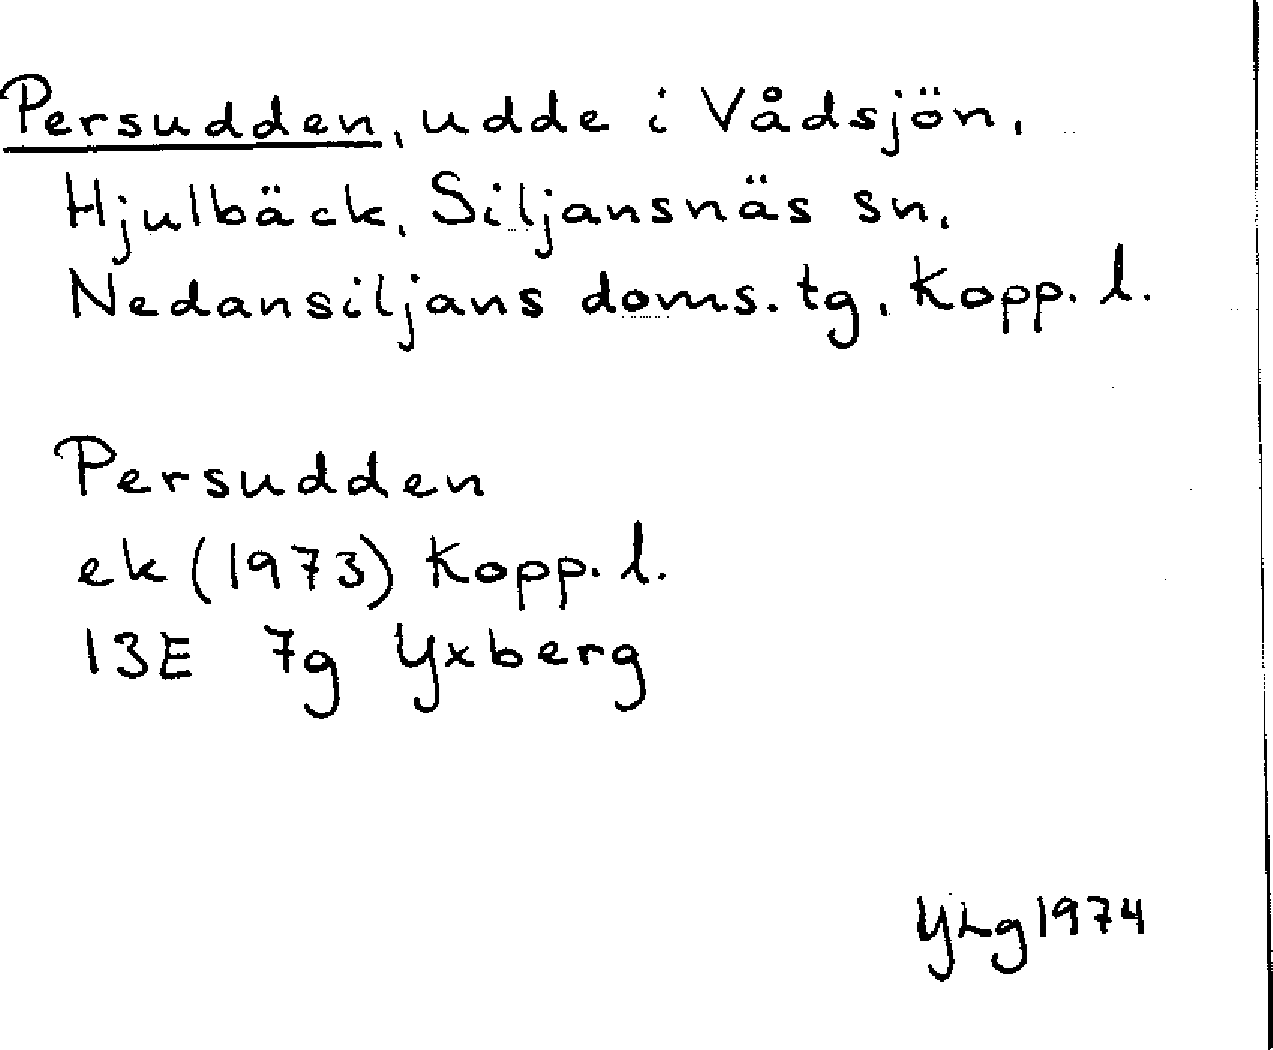 Persudden, udde i Vådsjön,
Hjulbäck, Siljansnäs sn,
Nedansiljans doms. tg, Kopp. l.
Persudden
ek (1973) Kopp. l.
13E 7g Yxberg
YLg 1974